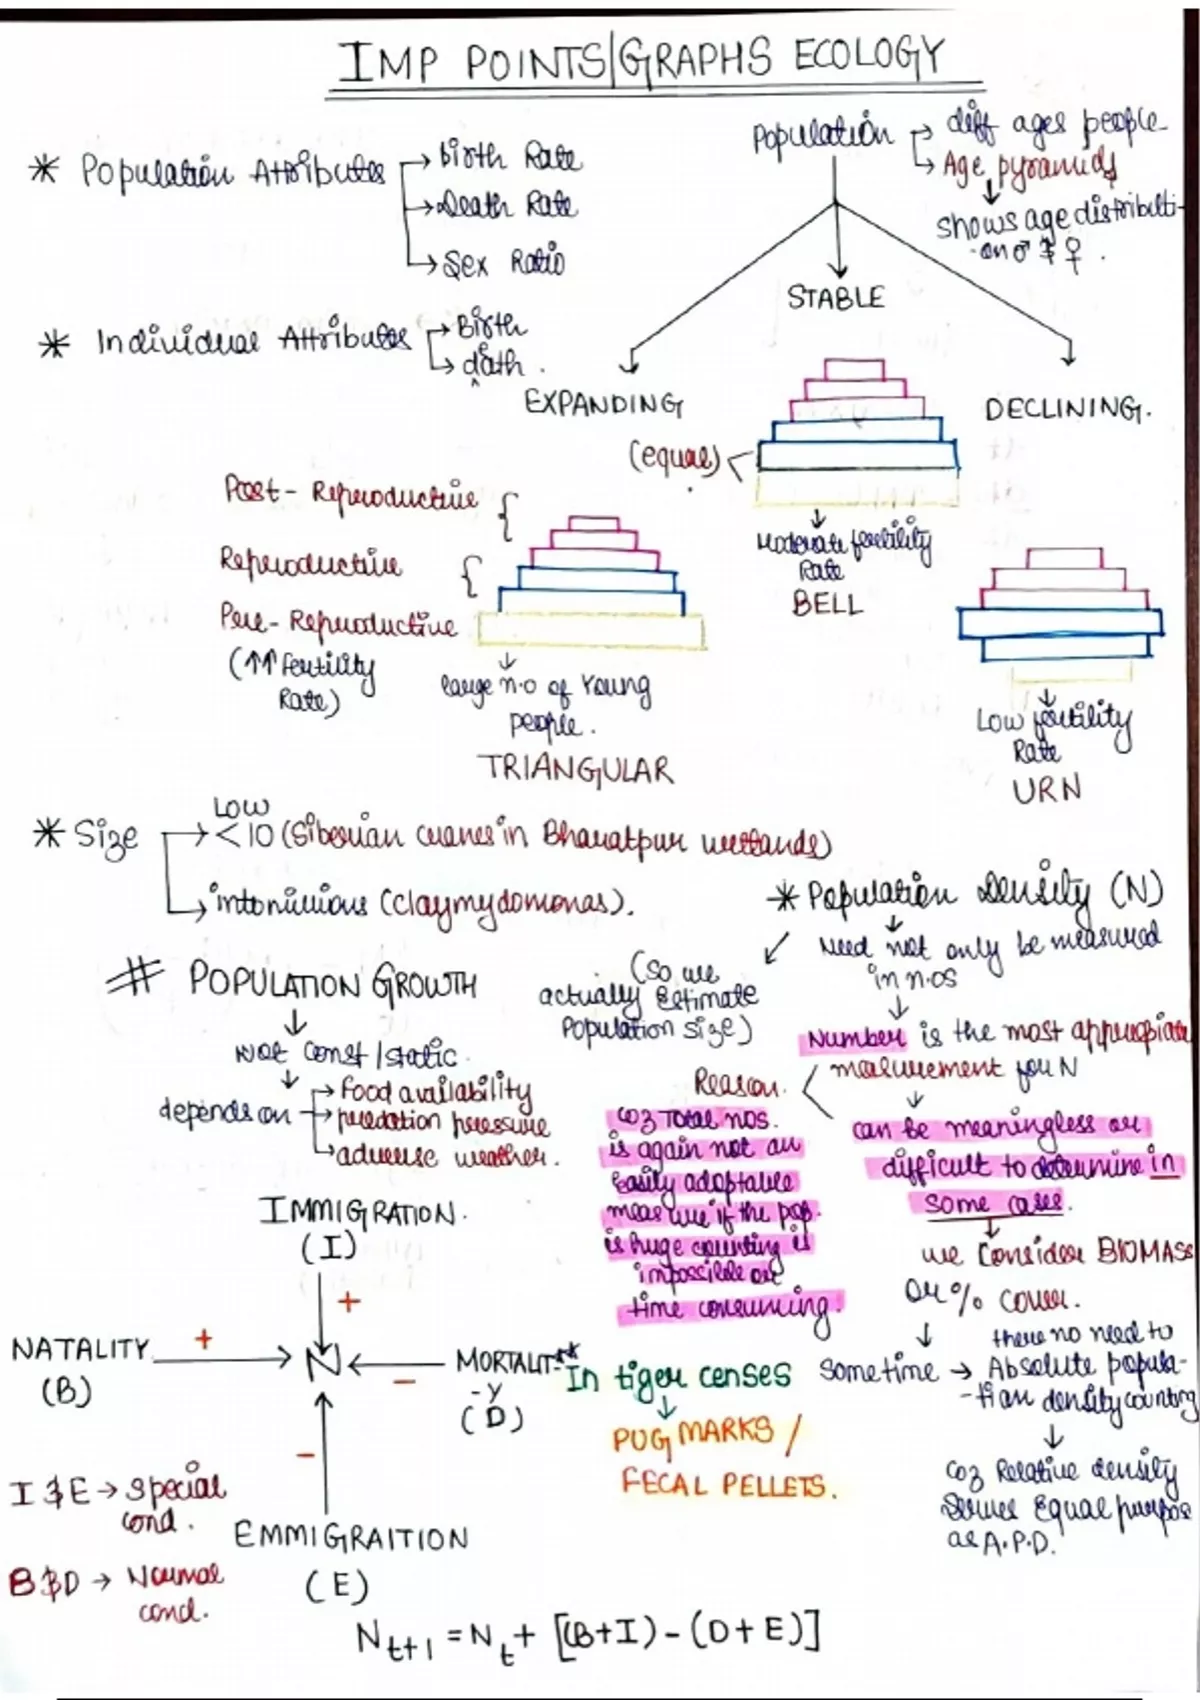 IMP POINTS/GRAPHS ECOLOGY
* Population Attributes → Birth Rate
→ Death Rate
→ Sex Ratio
Population → diff ages people
→ Age pyramids
↓
shows age distributi-
-on ♂ & ♀.
* Individual Attributes → Birth
→ death.
STABLE
EXPANDING
DECLINING.
(equal)
Moderate fertility
Rate
BELL
Post-Reproductive
Reproductive
Pre-Reproductive
(↑↑ Fertility
Rate)
large n.o of Young
people.
TRIANGULAR
Low fertility
Rate
URN
* Size → LOW
<10 (Siberian cranes in Bharatpur wetlands)
→ into millions (Claymydomonas).
# POPULATION GROWTH
↓
Not Const/static.
↓
depends on → food availability
→ predation pressure
→ adverse weather.
* Population Density (N)
↓
Need not only be measured
in n.os
↓
(So we
actually Estimate
Population size)
Number is the most appropriate
measurement for N
Reason.
coz Total nos.
is again not an
easily adoptable
measure if the pop.
is huge counting is
impossible or
time consuming.
↓
can be meaningless or
difficult to determine in
some cases.
↓
we Consider BIOMASS
or % cover.
↓
Sometime → there no need to
Absolute popula-
-tion density counting
↓
coz Relative density
serves Equal purpose
as A.P.D.
IMMIGRATION.
(I)
+
NATALITY
(B)
+
N
-
MORTALIT
-Y
(D)
-
EMMIGRAITION
(E)
I & E → special
cond.
B & D → Normal
cond.
** In tiger censes
↓
PUG MARKS /
FECAL PELLETS.
Nt+1 = Nt + [(B+I) - (D+E)]